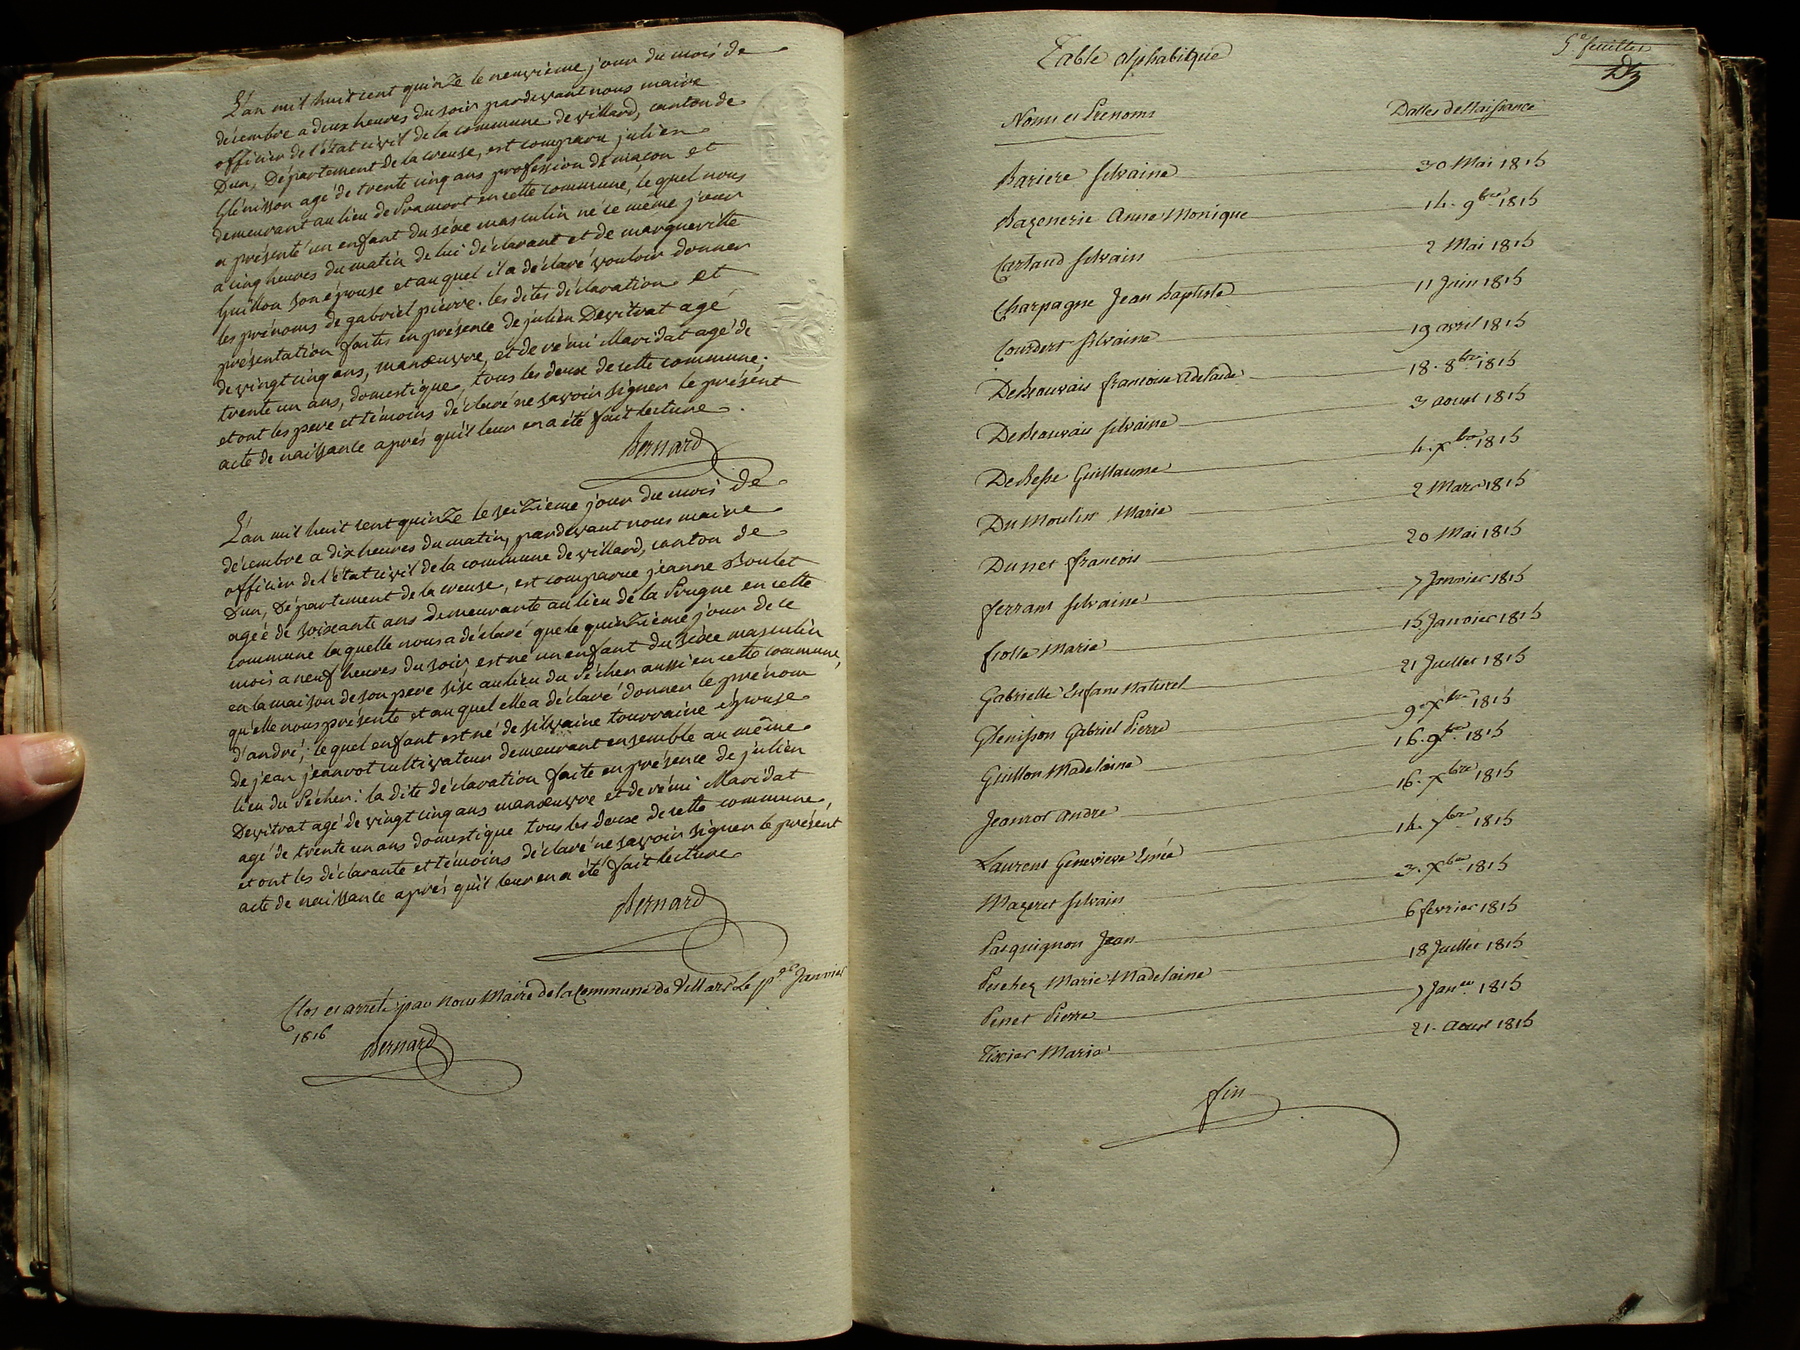 L'an mil huit cent quinze le neuvieme jour du mois de
décembre a deux heures du soir pardevant nous maire
officier de l'état civil de la commune de villard, canton de
Dun, Département de la creuse, est comparu julien
Glénisson agé de trente cinq ans profession de maçon et
demeurant au lieu de en cette commune, le quel nous
a présenté un enfant du séxe masculin né ce même jour
a cinq heures du matin de lui déclarant et de margueritte
Guillon son épouse et au quel il a déclaré vouloir donner
les prénoms de gabriel pierre. les dites déclaration et
présentation faites en présence de julien Devitrat agé
de vingt cinq ans, manœuvre, et de rémi Maridat agé de
trente un ans, domestique, tous les deux de cette commune;
et ont les pere et témoins déclaré ne savoir signer le présent
acte de naissance aprés qu'il leur en a été fait lecture.
Bernard
L'an mil huit cent quinze le seizieme jour du mois de
décembre a dix heures du matin, pardevant nous maire
officier de l'état civil de la commune de villard, canton de
Dun, Département de la creuse, est comparue jeanne Boulet
agée de soixante ans demeurante au lieu de la Prugne en cette
commune laquelle nous a déclaré que le quinzieme jour de ce
mois a neuf heures du soir, est né un enfant du séxe masculin
en la maison de son pere sise au lieu du Pécher aussi en cette commune,
qu'elle nous présente et au quel elle a déclaré donner le prénom
d'andré; le quel enfant est né de silvaine tourraine épouse
de jean jeanrot cultivateur demeurant ensemble au même
lieu du Pécher: la dite déclaration faite en présence de julien
Devitrat agé de vingt cinq ans manœuvre et de rémi Maridat
agé de trente un ans domestique tous les deux de cette commune,
et ont les déclarante et témoins déclaré ne savoir signer le présent
acte de naissance aprés qu'il leur en a été fait lecture
Bernard
Clos et arrêté par nous Maire de la Commune de Villard le pr Janvier
1816
Bernard
5e feuillet
Table alphabétique
Noms et Prenoms Dattes de Naissance
Bariere silvaine 30 Mai 1815
Bazenerie Anne Monique 14. 9bre 1815
Carlaud silvain 2 Mai 1815
Charpagne Jean baptiste 11 Juin 1815
Coudert silvaine 19 avril 1815
DeBeauvais francoise adelaide 18. 8bre 1815
DeBeauvais silvaine 3 aout 1815
DeBesse Guillaume 4. Xbre 1815
DuMoulin Marie 2 Mars 1815
Dunet francois 20 Mai 1815
ferrant silvaine 7 Janvier 1815
Marie 15 Janvier 1815
Gabrielle Enfant Naturel 21 Juillet 1815
Glenisson Gabriel Pierre 9. Xbre 1815
Guillon Madelaine 16. 9bre 1815
Jeanrot andré 16. Xbre 1815
Laurent Genevieve 14. 7bre 1815
Mazeret silvain 3. Xbre 1815
Pasquignon Jean 6 fevrier 1815
Peschez Marie Madelaine 18 Juillet 1815
Penet Pierre 7 Janer 1815
Tixier Marie 21. Aout 1815
fin